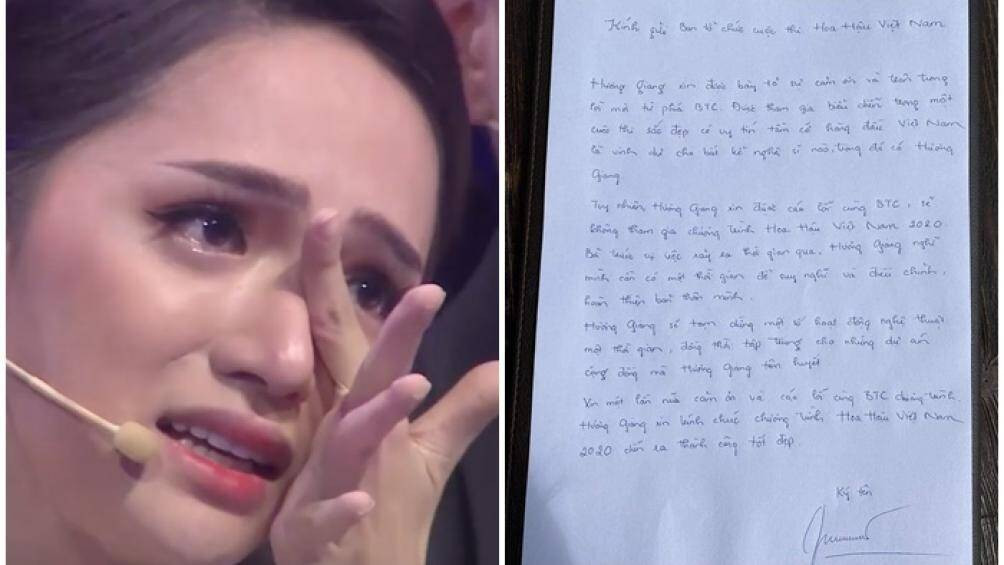 Kính gửi Ban tổ chức cuộc thi Hoa Hậu Việt Nam
Hương Giang xin được bày tỏ sự cảm ơn và trân trọng
lời mời từ phía BTC. Được tham gia biểu diễn trong một
cuộc thi sắc đẹp có uy tín tầm cỡ hàng đầu Việt Nam
là vinh dự cho bất kể nghệ sĩ nào, trong đó có Hương
Giang
Tuy nhiên, Hương Giang xin được cáo lỗi cùng BTC, sẽ
không tham gia chương trình Hoa Hậu Việt Nam 2020.
sự việc xảy ra thời gian qua, Hương Giang nghĩ
mình cần có một thời gian để suy nghĩ và điều chỉnh,
hoàn thiện bản thân mình.
Hương Giang sẽ tạm dừng một số hoạt động nghệ thuật
một thời gian, đồng thời tập trung cho những dự án
cộng đồng mà Hương Giang tâm huyết
Xin một lần nữa cảm ơn và cáo lỗi cùng BTC chương trình.
Hương Giang xin kính chúc chương trình Hoa Hậu Việt Nam
2020 diễn ra thành công tốt đẹp.
Ký tên